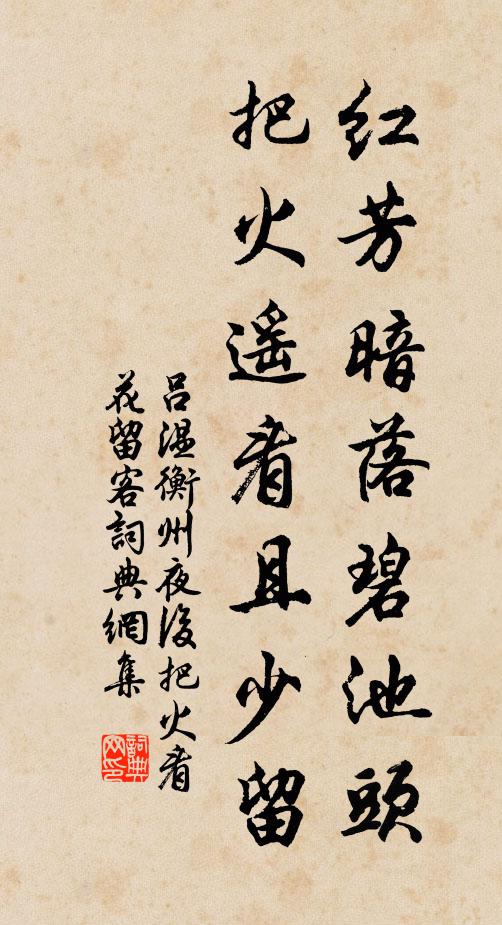 红芳暗落碧池頭
把火遥看且少留
吕温衡州夜後把火看
花留客詞典網集
詞典网印